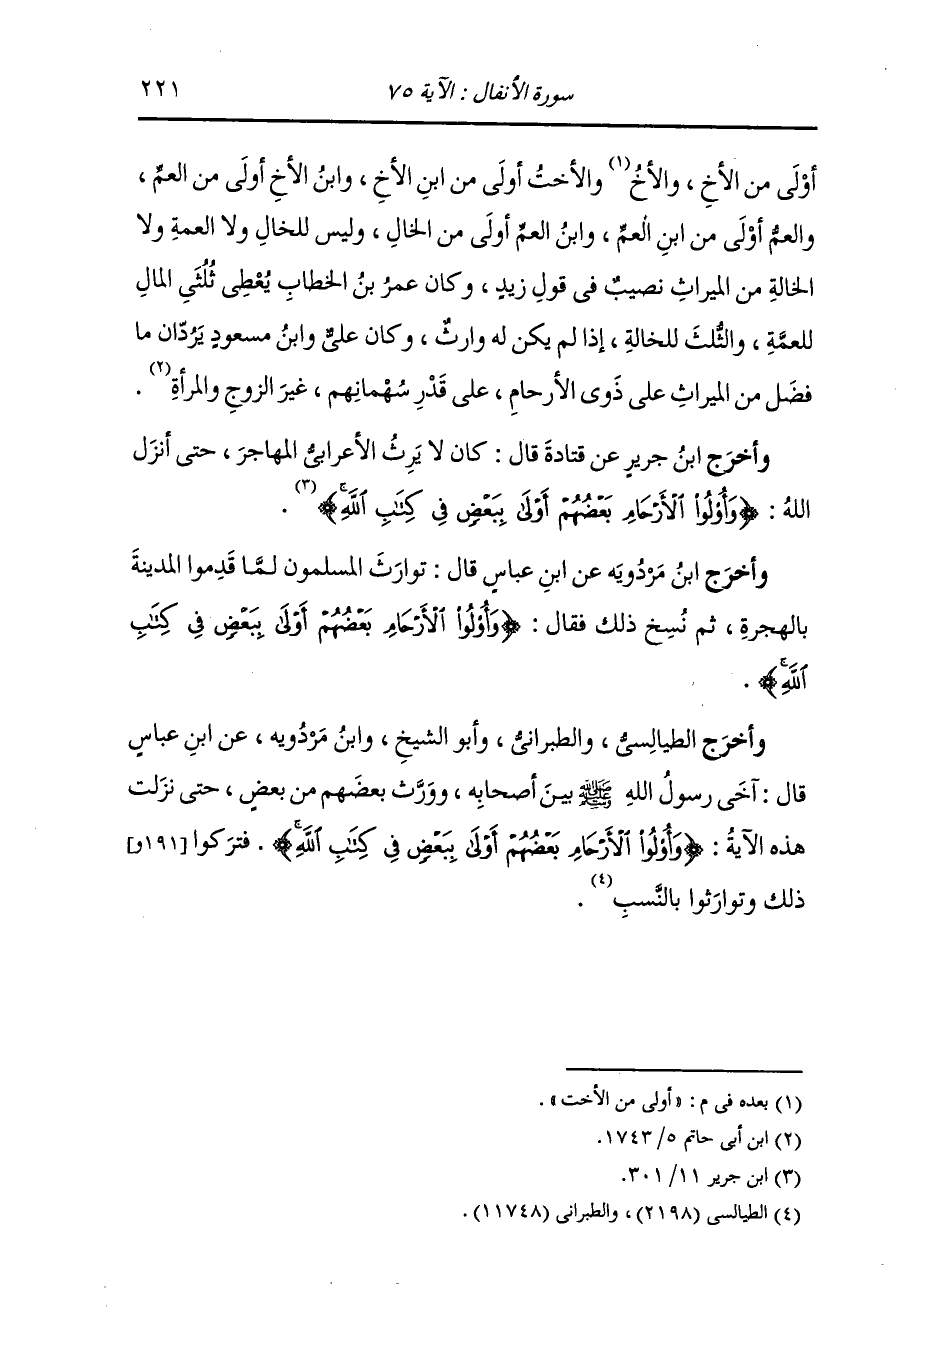 سورة الأنفال : الآية ٧٥ ٢٢١
أوْلَى من الأخِ ، والأخُ(١) والأختُ أولَى من ابنِ الأخِ ، وابنُ الأخِ أولَى من العمِّ ،
والعمُّ أوْلَى من ابنِ العمِّ ، وابنُ العمِّ أولَى من الخالِ ، وليس للخالِ ولا العمةِ ولا
الخالةِ من الميراثِ نصيبٌ فى قولِ زيدٍ ، وكان عمرُ بنُ الخطابِ يُعْطِى ثُلُثَىِ المالِ
للعمَّةِ ، والثُّلثَ للخالةِ ، إذا لم يكن له وارثٌ ، وكان علىٌّ وابنُ مسعودٍ يَرُدّان ما
فضَل من الميراثِ على ذَوى الأرحامِ ، على قَدْرِ سُهْمانِهم ، غيرَ الزوجِ والمرأةِ(٢) .
وأخرَج ابنُ جريرٍ عن قتادةَ قال : كان لا يَرِثُ الأعرابىُّ المهاجرَ ، حتى أنزَل
اللهُ : ﴿وَأُوْلُواْ ٱلْأَرْحَامِ بَعْضُهُمْ أَوْلَىٰ بِبَعْضٍ فِي كِتَٰبِ ٱللَّهِۚ﴾(٣) .
وأخرَج ابنُ مَرْدُويَه عن ابنِ عباسٍ قال : توارَثَ المسلمون لمَّا قَدِموا المدينةَ
بالهجرةِ ، ثم نُسِخ ذلك فقال : ﴿وَأُوْلُواْ ٱلْأَرْحَامِ بَعْضُهُمْ أَوْلَىٰ بِبَعْضٍ فِي كِتَٰبِ
ٱللَّهِۚ﴾ .
وأخرَج الطيالِسىُّ ، والطبرانىُّ ، وأبو الشيخِ ، وابنُ مَرْدُويه ، عن ابنِ عباسٍ
قال : آخَى رسولُ اللهِ ﷺ بينَ أصحابِه ، وورَّث بعضَهم من بعضٍ ، حتى نزَلت
هذه الآيةُ : ﴿وَأُوْلُواْ ٱلْأَرْحَامِ بَعْضُهُمْ أَوْلَىٰ بِبَعْضٍ فِي كِتَٰبِ ٱللَّهِۚ﴾ . فترَكوا [١٩١و]
ذلك وتوارَثوا بالنَّسبِ(٤) .
(١) بعده فى م : «أولى من الأخت» .
(٢) ابن أبى حاتم ٥/ ١٧٤٣.
(٣) ابن جرير ١١/ ٣٠١.
(٤) الطيالسى (٢١٩٨) ، والطبرانى (١١٧٤٨) .